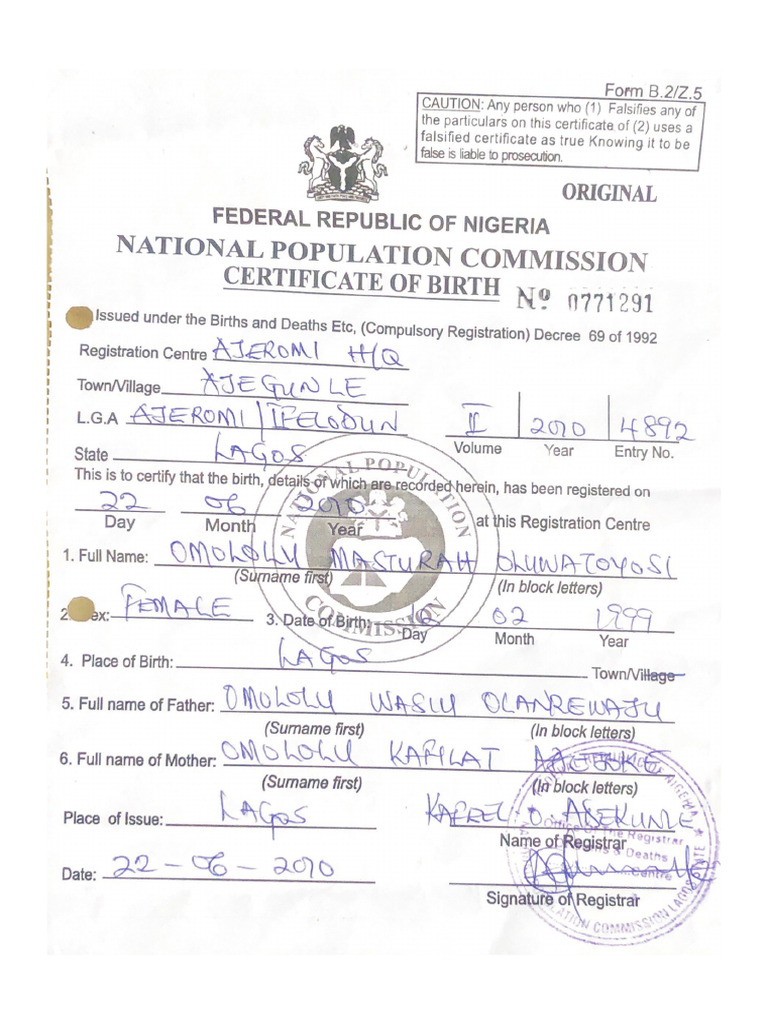 Form B.2/Z.5
CAUTION: Any person who (1) Falsifies any of
the particulars on this certificate of (2) uses a
falsified certificate as true Knowing it to be
false is liable to prosecution.
ORIGINAL
FEDERAL REPUBLIC OF NIGERIA
NATIONAL POPULATION COMMISSION
CERTIFICATE OF BIRTH
Nº 0771291
Issued under the Births and Deaths Etc, (Compulsory Registration) Decree 69 of 1992
Registration Centre AJEROMI H/Q
Town/Village AJEGUNLE
L.G.A AJEROMI/IFELODUN II 2010 4892
Volume Year Entry No.
State LAGOS
This is to certify that the birth, details of which are recorded herein, has been registered on
22 06 2010 at this Registration Centre
Day Month Year
NATIONAL POPULATION COMMISSION
1. Full Name: OMOLOLU MASTURAH OLUWATOYOSI
(Surname first) (In block letters)
2. ex: FEMALE 3. Date of Birth: 02 1999
Day Month Year
4. Place of Birth: LAGOS Town/Village
5. Full name of Father: OMOLOLU WASIU OLANREWAJU
(Surname first) (In block letters)
6. Full name of Mother: OMOLOLU KAFILAT
(Surname first) (In block letters)
Place of Issue: LAGOS ADEKUNLE
Name of Registrar
Office Of The Registrar
& Deaths
Centre
Date: 22-06-2010
Signature of Registrar
COMMISSION LAGOS
NIGERIA